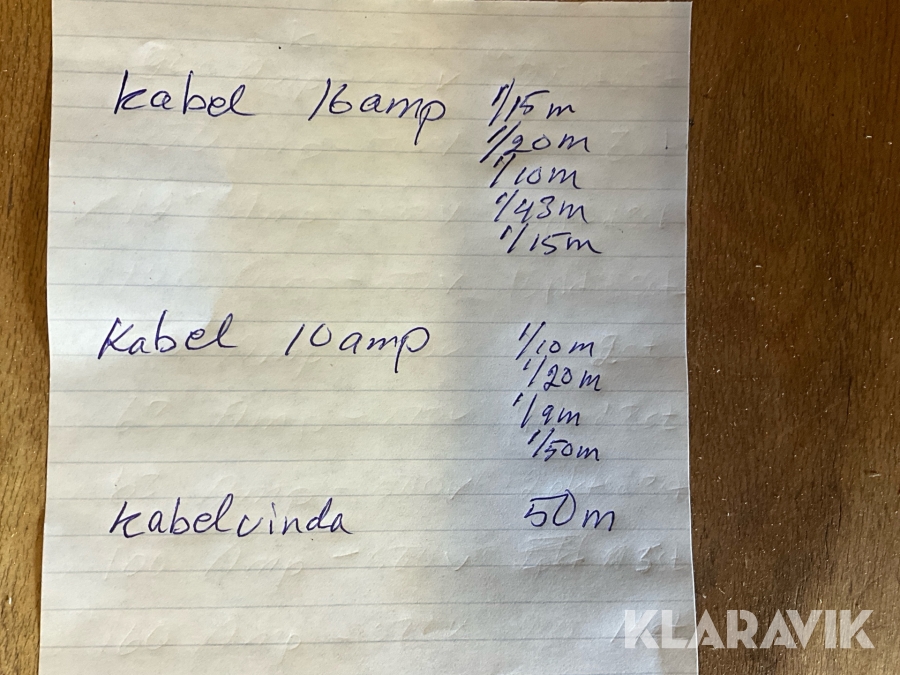 kabel 16amp 1/15m
1/20m
1/10m
1/43m
1/15m
Kabel 10amp 1/10m
1/20m
1/9m
1/50m
kabelvinda 50m
KLARAVIK